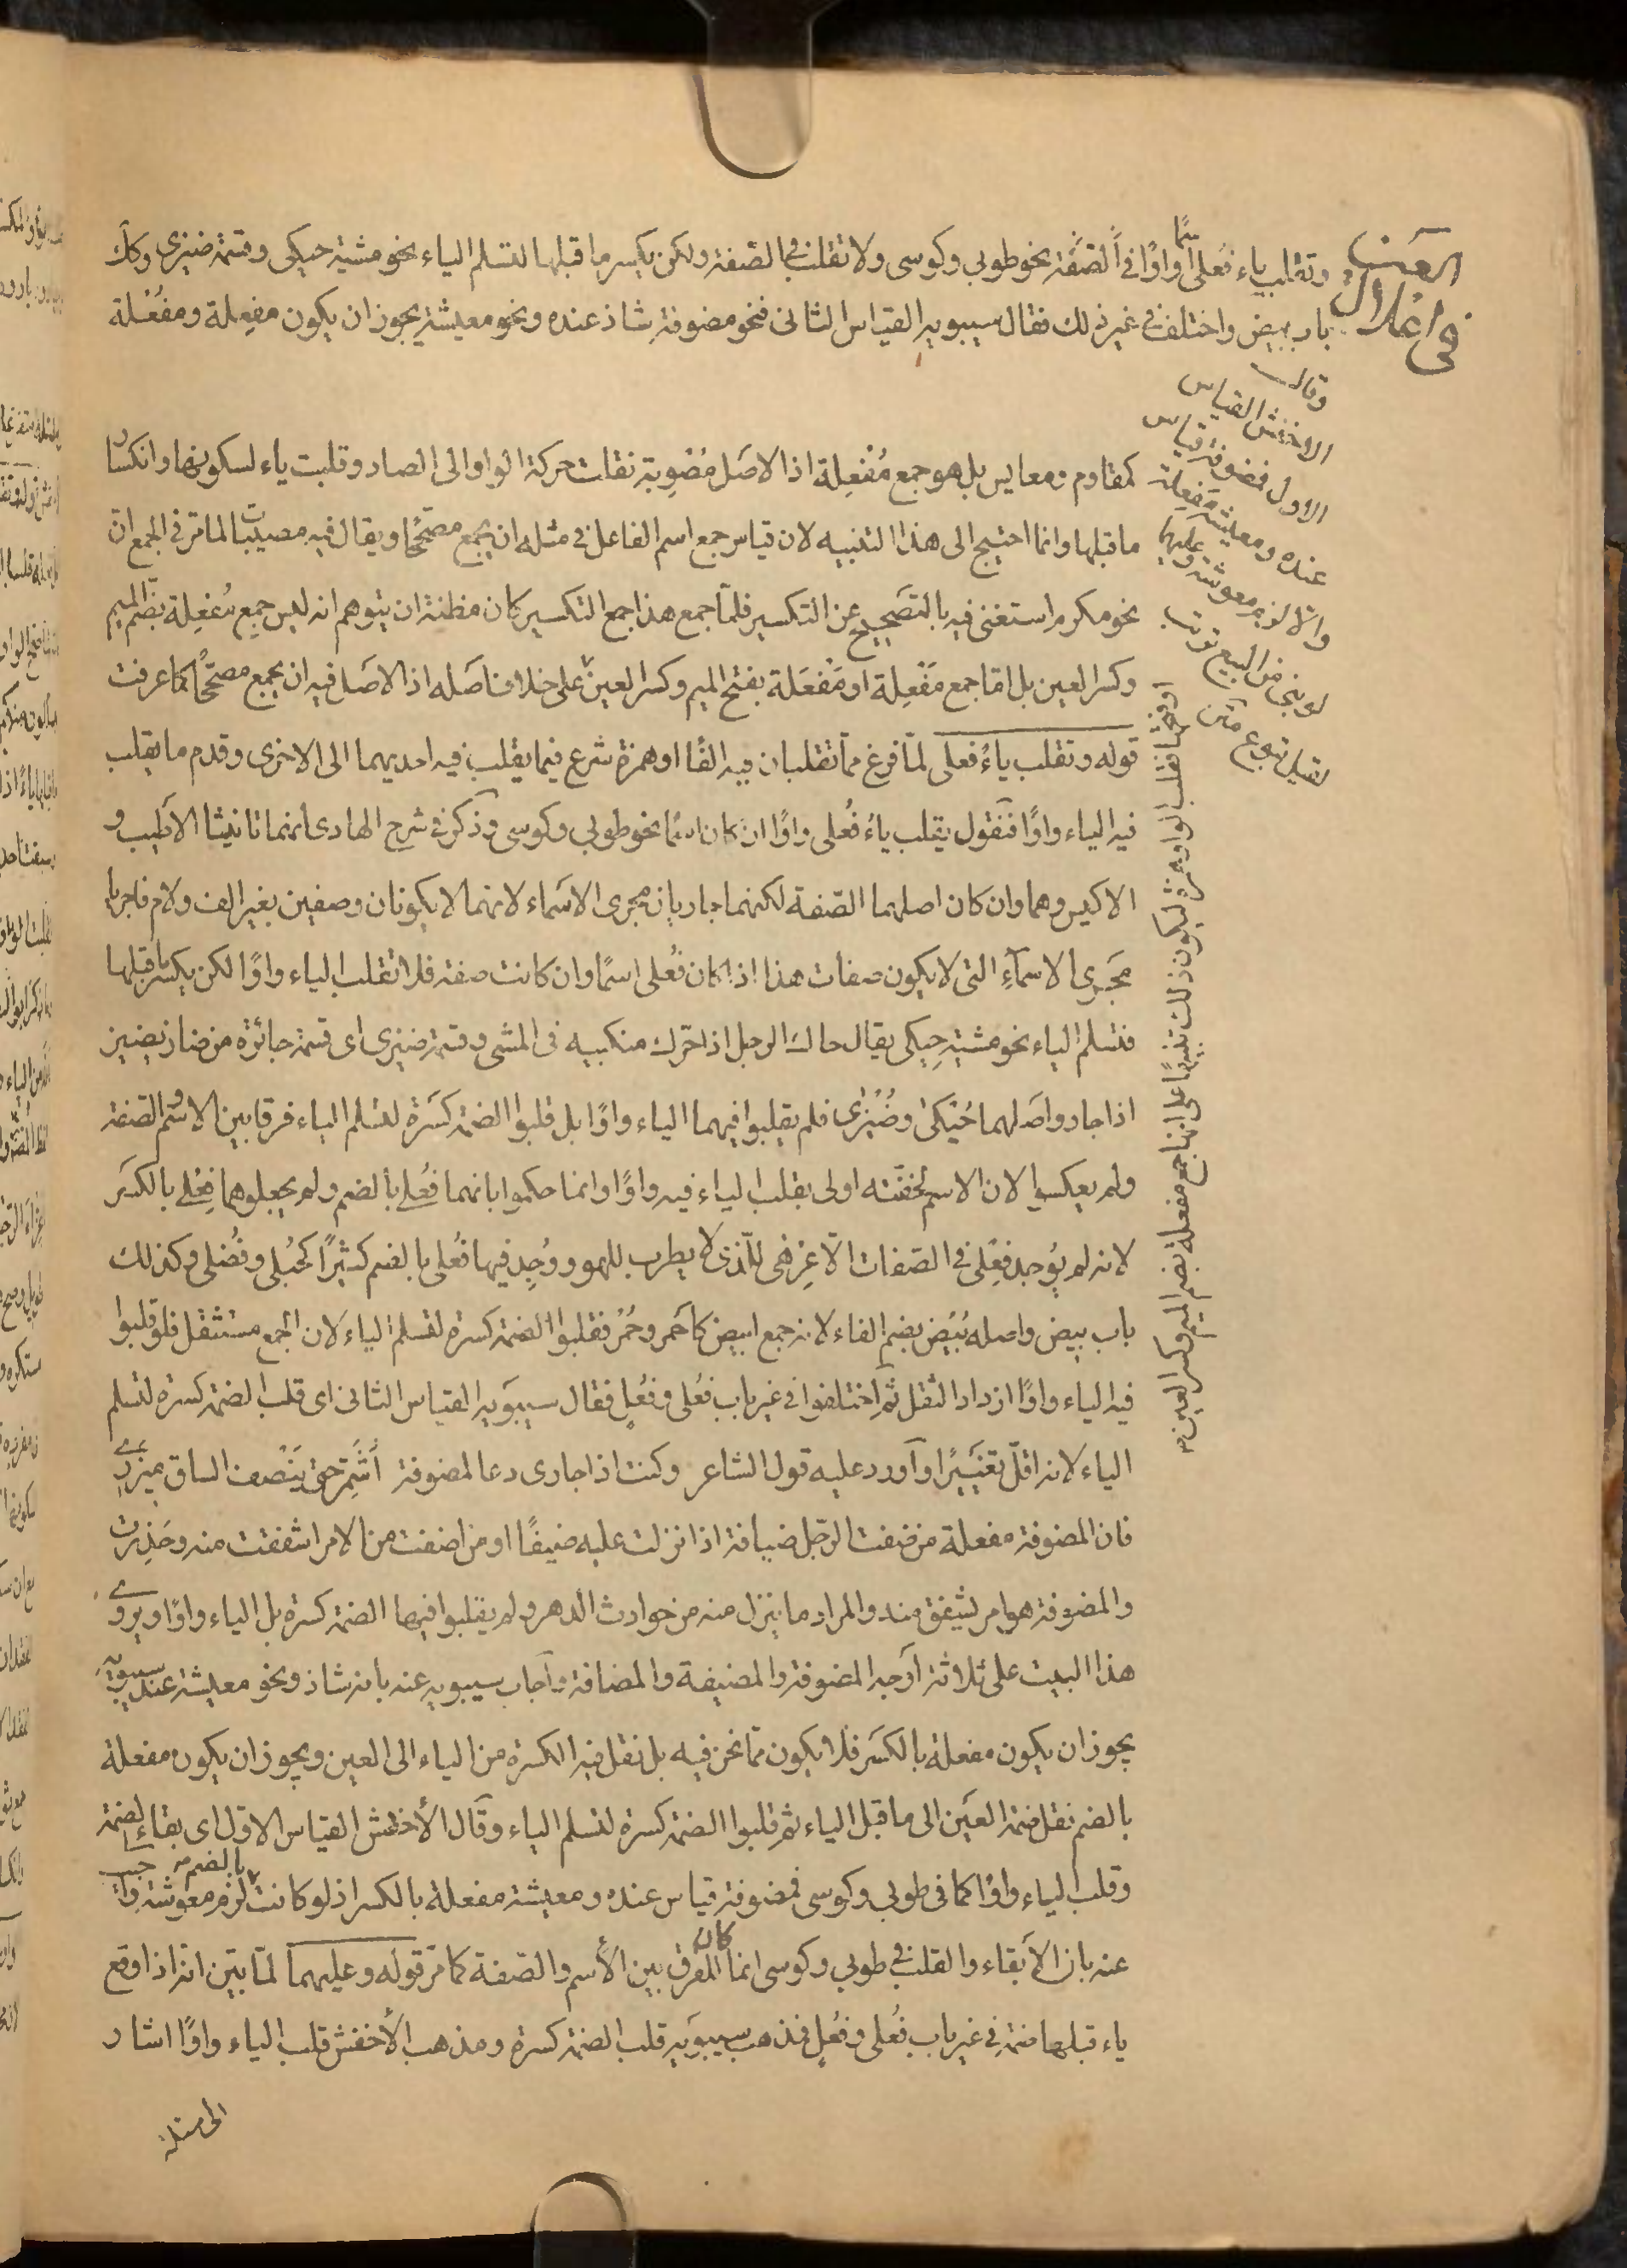 في اعلال العين
وتقلب ياء فُعلى اسمًا واوًا في الصّفة نحو طوبى وكوسى ولا تقلب في الصّفة ولكن يكسر ما قبلها لتسلم الياء نحو مشية حيكى وقسمة ضيزى وكذلك
باب بيض واختلف في غير ذلك فقال سيبويه القياس الثانى فنحو مضوفة شاذ عنده ونحو معيشة يجوز ان يكون مفعِلة ومفعُلة
وقال
الاخفش القياس
الاول فمضوفة قياس
عنده ومعيشة مَفعِلة
والّا لزم معوشة وعليهما
لو بنى من البيع ترتب
لقيل تبيع وتبوع متن
كمقاوم ومعايش بل هو جمع مُفْعِلة اذا الاصل مُصْوِبة نقلت حركة الواو الى الصاد وقلبت ياء لسكونها وانكسار
ما قبلها وانما احتيج الى هذا التنبيه لان قياس جمع اسم الفاعل في مثله ان يجمع مصحّحًا ويقال فيه مصيبات لما مرّ في الجمع ان
نحو مكرم استغنى فيه بالتصحيح عن التكسير فلمّا جمع هذا جمع التكسير كان مظنة ان يتوهم انه ليس جمع مُفعِلة بضمّ الميم
وكسر العين بل امّا جمع مَفْعِلة او مَفْعَلة بفتح الميم وكسر العين على خلاف اصله اذ الاصل فيه ان يجمع مصحّحًا كما عرفت
او فتحها فقلب الواو همزة ليكون ذلك تنبيهًا على انها جمع مفعلة بضم الميم وكسر العين
قوله وتقلب ياءُ فعلى لمّا فرغ ممّا تقلبان فيه الفًا او همزة شرع فيما يقلب فيه احديهما الى الاخرى وقدم ما يقلب
فيه الياء واوًا فنقول يقلب ياءُ فُعلى واوًا ان كان اسمًا نحو طوبى وكوسى وذكر في شرح الهادى انهما تانيثا الاطيب و
الاكيس وهما وان كان اصلهما الصّفة لكنهما جاريان مجرى الاسماء لانهما لا يكونان وصفين بغير الف ولام فاجريا
مَجرى الاسمآءِ التى لا يكون صفات هذا اذا كان فُعلى اسمًا وان كانت صفة فلا تقلب الياء واوًا لكن يكسر ما قبلها
فتسلم الياء نحو مشية حِيكى يقال حاك الرجل اذا حرّك منكبيه فى المشى وقسمة ضيزى اى قسمة جائزة من ضاز يضيز
اذا جار واصلهما حُيْكى وضُيْزى فلم يقلبوا فيهما الياء واوًا بل قلبوا الضمة كسرة لتسلم الياء فرقا بين الاسم والصّفة
ولم يعكسوا لان الاسم لخفّته اولى بقلب الياء فيه واوًا وانما حكموا بانهما فُعلى بالضم ولم يجعلوهما فِعْلى بالكسر
لانه لم يُوجد فِعْلى فى الصّفات الّا عِزهى للّذى لا يطرب للهو ووُجِد فيها فُعلى بالضم كثيرًا كحُبلى وفُضلى وكذلك
باب بيض واصله بُيْض بضم الفاء لانه جمع ابيض كاحمر وحُمْر فقلبوا الضمة كسرة لتسلم الياء لان الجمع مستثقل فلو قلبوا
فيه الياء واوًا ازداد الثقل ثم اختلفوا فى غير باب فُعلى وفُعْل فقال سيبَويه القياس الثانى اى قلب الضمة كسرة لتسلم
الياء لانه اقلّ تغييرًا واورد عليه قول الشاعر وكنت اذا جارى دعا لمضوفة أشَمِّر حتى يَنْصف الساق ميزرى
فان المضوفة مفعلة من ضفت الرّجل ضيافة اذا نزلت عليه ضيفًا او من اضفت من الامر اشفقت منه وحَذِرت
والمضوفة هو امر يشفق منه والمراد ما ينزل منه من حوادث الدهر ولم يقلبوا فيها الضمة كسرة بل الياء واوًا ويروى
هذا البيت على ثلاثة اَوجه المضوفة والمضيفة والمضافة واجاب سيبويه عنه بانه شاذ ونحو معيشة عند سيبويه
يجوز ان يكون مفعلة بالكسر فلا يكون ممّا نحن فيه بل نقل فيه الكسرة من الياء الى العين ويجوز ان يكون مفعلة
بالضم نقل ضمة العين الى ما قبل الياء ثم قلبوا الضمة كسرة لتسلم الياء وقال الأخفش القياس الاول اى بقاء الضمة
وقلب الياء واوًا كما فى طوبى وكوسى فمضوفة قياس عنده ومعيشة مفعلة بالكسر اذ لو كانت بالضم لزم معوشة واجيب
عنه بان الابقاء والقلب فى طوبى وكوسى انما كان للفرق بين الأسم والصّفة كما مرّ قوله وعليهما لمّا بيّن انّه اذا وقع
ياء قبلها ضمة فى غير باب فُعلى وفُعْل فمذهب سيبويه قلب الضمة كسرة ومذهب الأخفش قلب الياء واوًا اشار